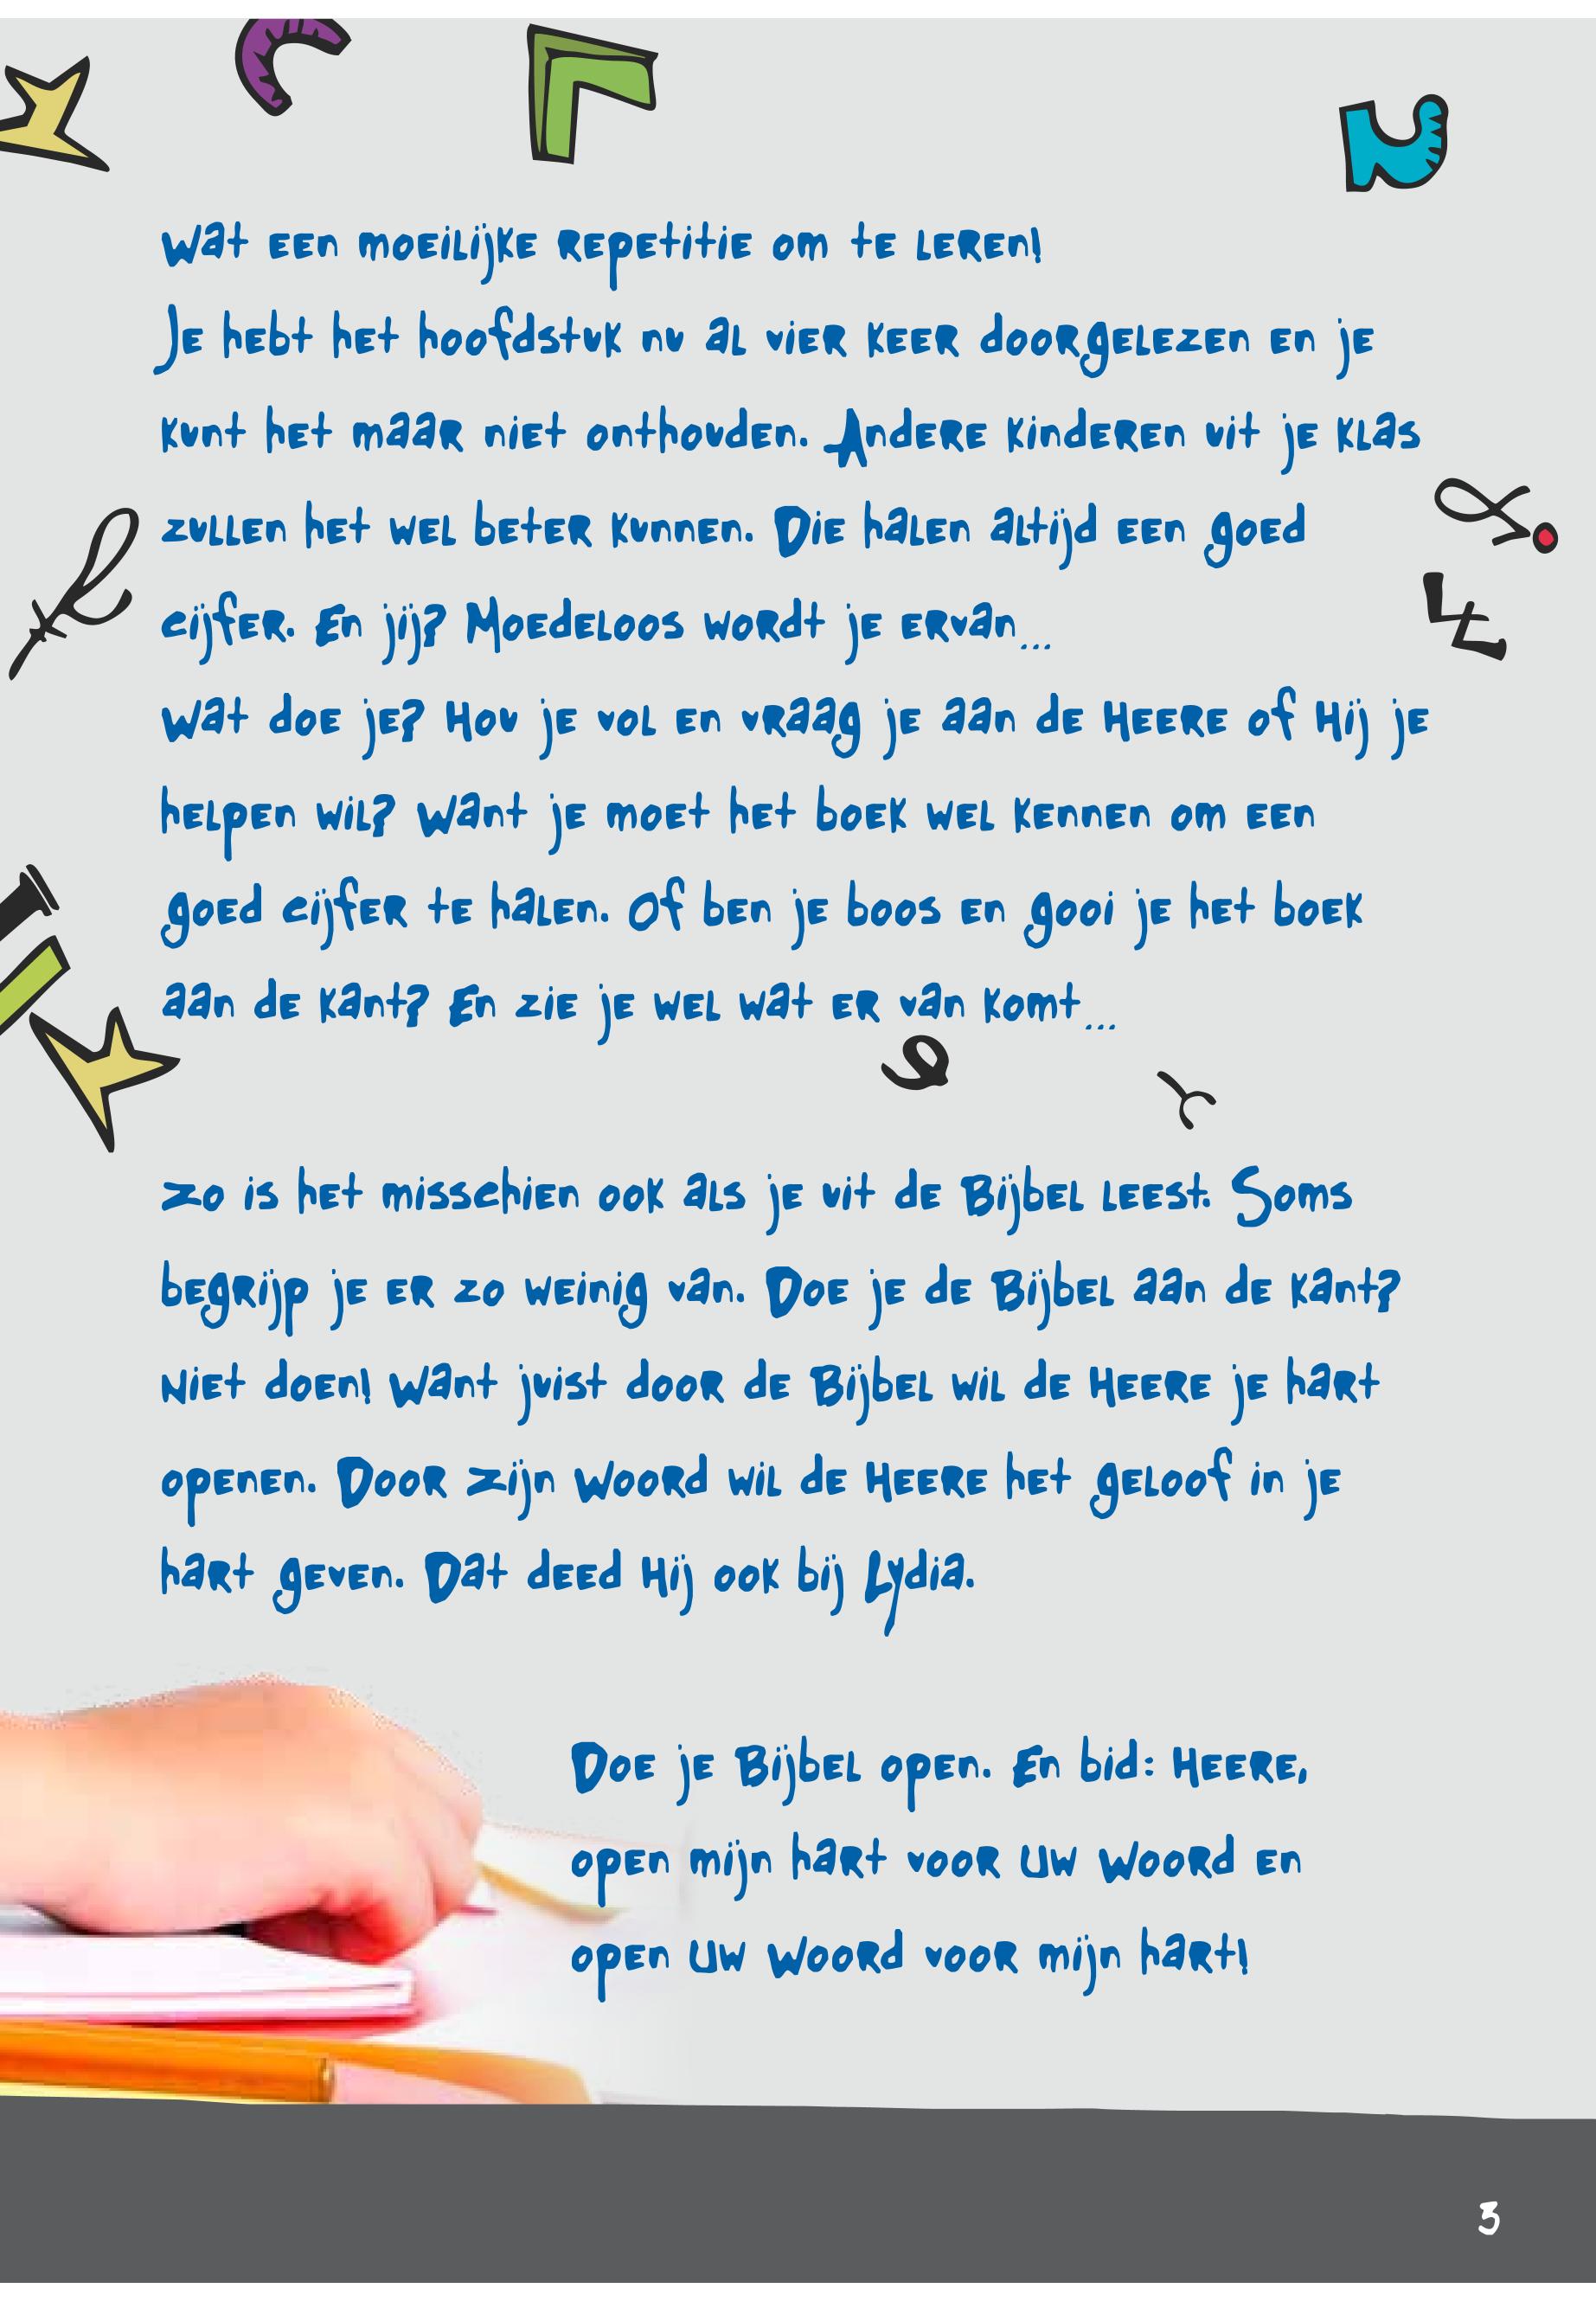 Wat een moeilijke repetitie om te leren!
Je hebt het hoofdstuk nu al vier keer doorgelezen en je
kunt het maar niet onthouden. Andere kinderen uit je klas
zullen het wel beter kunnen. Die halen altijd een goed
cijfer. En jij? Moedeloos wordt je ervan...
Wat doe je? Hou je vol en vraag je aan de HEERE of Hij je
helpen wil? Want je moet het boek wel kennen om een
goed cijfer te halen. Of ben je boos en gooi je het boek
aan de kant? En zie je wel wat er van komt...
Zo is het misschien ook als je uit de Bijbel leest. Soms
begrijp je er zo weinig van. Doe je de Bijbel aan de kant?
Niet doen! Want juist door de Bijbel wil de HEERE je hart
openen. Door Zijn Woord wil de HEERE het geloof in je
hart geven. Dat deed Hij ook bij Lydia.
Doe je Bijbel open. En bid: HEERE,
open mijn hart voor Uw Woord en
open Uw Woord voor mijn hart!
3